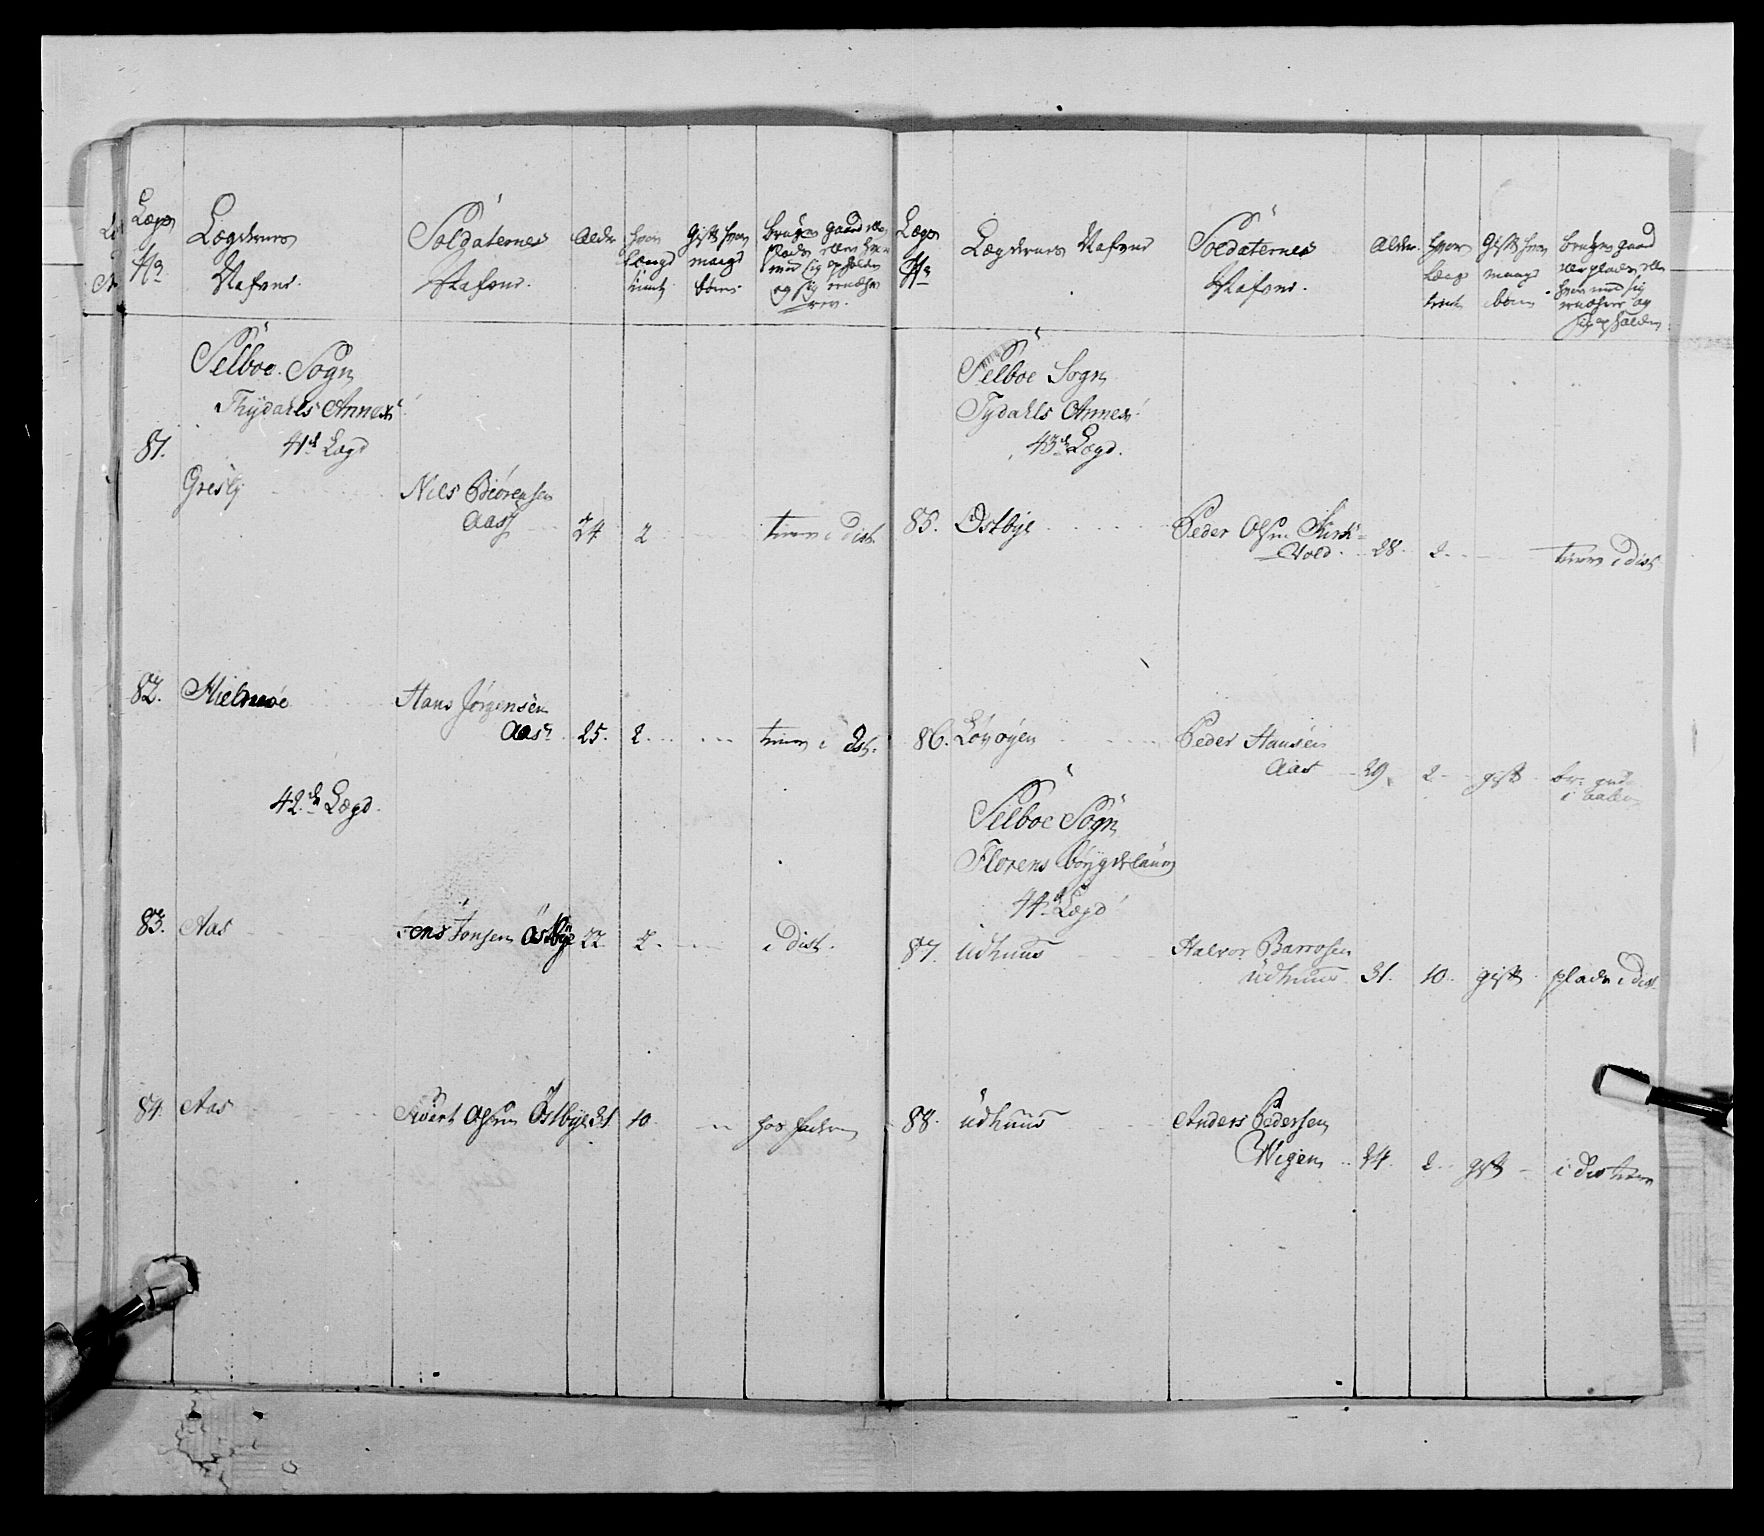 Lægs
No
Lægdernes
Nafvne.
Soldaternes
Nafvne.
Alder
hvor
længe
tient
Gift hvor
mange
børn
bruger gaard eller
Plads eller hvor
med sig opholder
og sig ernærer
Selboe Sogn
Thydahls Annex
81.
41de Lægd
Gresly
Nils Biörensen
Aas
24
2
tiener i Dist
82.
Hans Jörgensen
Aas
25.
2
tiener i Dist.
42de Lægd
83.
Aas
Jens Jonsen Östbye
22
2
i Dist.
84.
Aas
Sivert Olsen Östbye
31
10
hos faderen
Lægs
No
Lægdernes Nafvne
Soldaternes
Nafvne.
Alder.
hvor
længe
tient
Gift hvor
mange
børn
bruger gaard
eller plads eller
hvor med sig
ernærer og
sig opholder
Selboe Sogn
Tydahls Annex
43de Lægd.
85.
Ostbye
Peder Olsen Kirk-
Vold
28
2
tiener i Dist
86.
Löv öyen
Peder Hansen
Aas
29
2
gift
Selboe Sogn
Florens böygdelaug
44de Lægd
87.
Udhuus
Halvor Barrosen
Udhuus
31.
10
gift
plads i Dist.
88.
Udhuus
Anders Pedersen
Wigen
34.
2
gift
i Dis